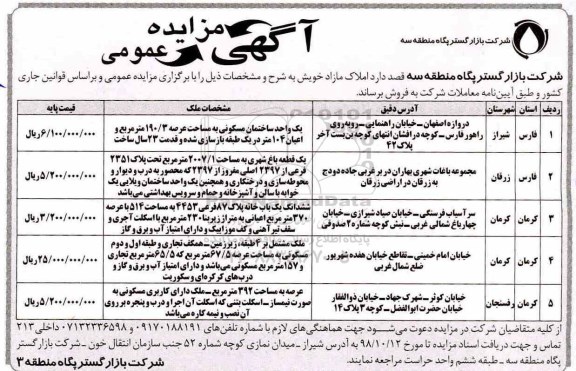 شرکت بازار گستر پگاه منطقه سه
آگهی مزایده عمومی
شرکت بازار گستر پگاه منطقه سه قصد دارد املاک مازاد خویش به شرح و مشخصات ذیل را با برگزاری مزایده عمومی و براساس قوانین جاری
کشور و طبق آیین‌نامه معاملات شرکت به فروش برساند.
ردیف استان شهرستان آدرس دقیق مشخصات ملک قیمت پایه
۱ فارس شیراز
دروازه اصفهان ــ خیابان راهنمایی ــ روبه‌روی
راهور فارس ــ کوچه درافشان انتهای کوچه بن‌بست آخر
پلاک ۴۲
یک واحد ساختمان مسکونی به مساحت عرصه ۱۹۰/۳ مترمربع و
اعیان ۱۰۴ متر در یک طبقه بازسازی شده و قدمت ۲۳ سال ساخت
۶/۱۰۰/۰۰۰/۰۰۰ ریال
۲ فارس زرقان
مجموعه باغات شهری بهاران در بر غربی جاده دودج
به زرقان در اراضی زرقان
یک قطعه باغ شهری به مساحت ۲۰۰۷/۱ مترمربع تحت پلاک ۲۳۵۱
فرعی از ۲۳۹۷ اصلی مفروز از ۲۳۹۷ که محصور به درب و دیوار و
محوطه‌سازی و درختکاری و همچنین یک واحد ساختمان ویلایی یک
خوابه با سالن و آشپزخانه و حمام و سرویس بهداشتی می‌باشد
۵/۲۰۰/۰۰۰/۰۰۰ ریال
۳ کرمان کرمان
سرآسیاب فرسنگی ــ خیابان صیاد شیرازی ــ خیابان
چهارباغ شمالی غربی ــ نبش کوچه شماره ۲ صدوقی
ششدانگ یک باب خانه پلاک ۸۷ فرعی ۴۴۵۳ به مساحت ۵۱۴ با عرصه
۳۷۰ مترمربع اعیانی به متراژ زیربنا ۲۳۰ مترمربع با اسکلت آجری و
سقف تیرآهنی و کف موزاییک و دارای امتیاز آب و برق و گاز
۳/۲۰۰/۰۰۰/۰۰۰ ریال
۴ کرمان کرمان
خیابان امام خمینی ــ تقاطع خیابان هفده شهریور
ضلع شمال غربی
ملک مشتمل بر ۴ طبقه، زیرزمین ــ همکف تجاری و طبقه اول و دوم
مسکونی به مساحت عرصه ۶۷/۵ مترمربع که ۶۵/۵ مترمربع تجاری
و ۱۵۷ مترمربع مسکونی می‌باشد و دارای امتیاز آب و برق و گاز و
درب‌های کرکره‌ای و سکوریت
۲۵/۰۰۰/۰۰۰/۰۰۰ ریال
۵ کرمان رفسنجان
خیابان کوثر ــ شهرک جهاد ــ خیابان ذوالفقار
خیابان حضرت ابوالفضل ــ کوچه ۳ پلاک ۱۴
عرصه به مساحت ۳۹۲ مترمربع ــ ملک دارای کاربری مسکونی به
صورت نیمساز ــ اسکلت بتنی که اسکلت آن اجرا و درب و پنجره بر روی
آن نصب و نیمه کاره می‌باشد
۵/۲۰۰/۰۰۰/۰۰۰ ریال
از کلیه متقاضیان شرکت در مزایده دعوت می‌شود جهت هماهنگی‌های لازم با شماره تلفن‌های ۰۹۱۷۰۱۸۸۱۹۱ و ۰۷۱۳۲۳۳۶۵۹۸ داخلی ۲۱۳
تماس و جهت دریافت اسناد مزایده تا مورخ ۹۸/۱۰/۱۲ به آدرس شیراز ــ میدان نمازی کوچه شماره ۵۲ جنب سازمان انتقال خون ــ شرکت بازار گستر
پگاه منطقه سه ــ طبقه ششم واحد حراست مراجعه نمایند.
شرکت بازار گستر پگاه منطقه ۳